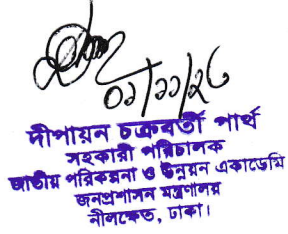 ০১/১১/২৩
দীপায়ন চক্রবর্তী পার্থ
সহকারী পরিচালক
জাতীয় পরিকল্পনা ও উন্নয়ন একাডেমি
জনপ্রশাসন মন্ত্রণালয়
নীলক্ষেত, ঢাকা।